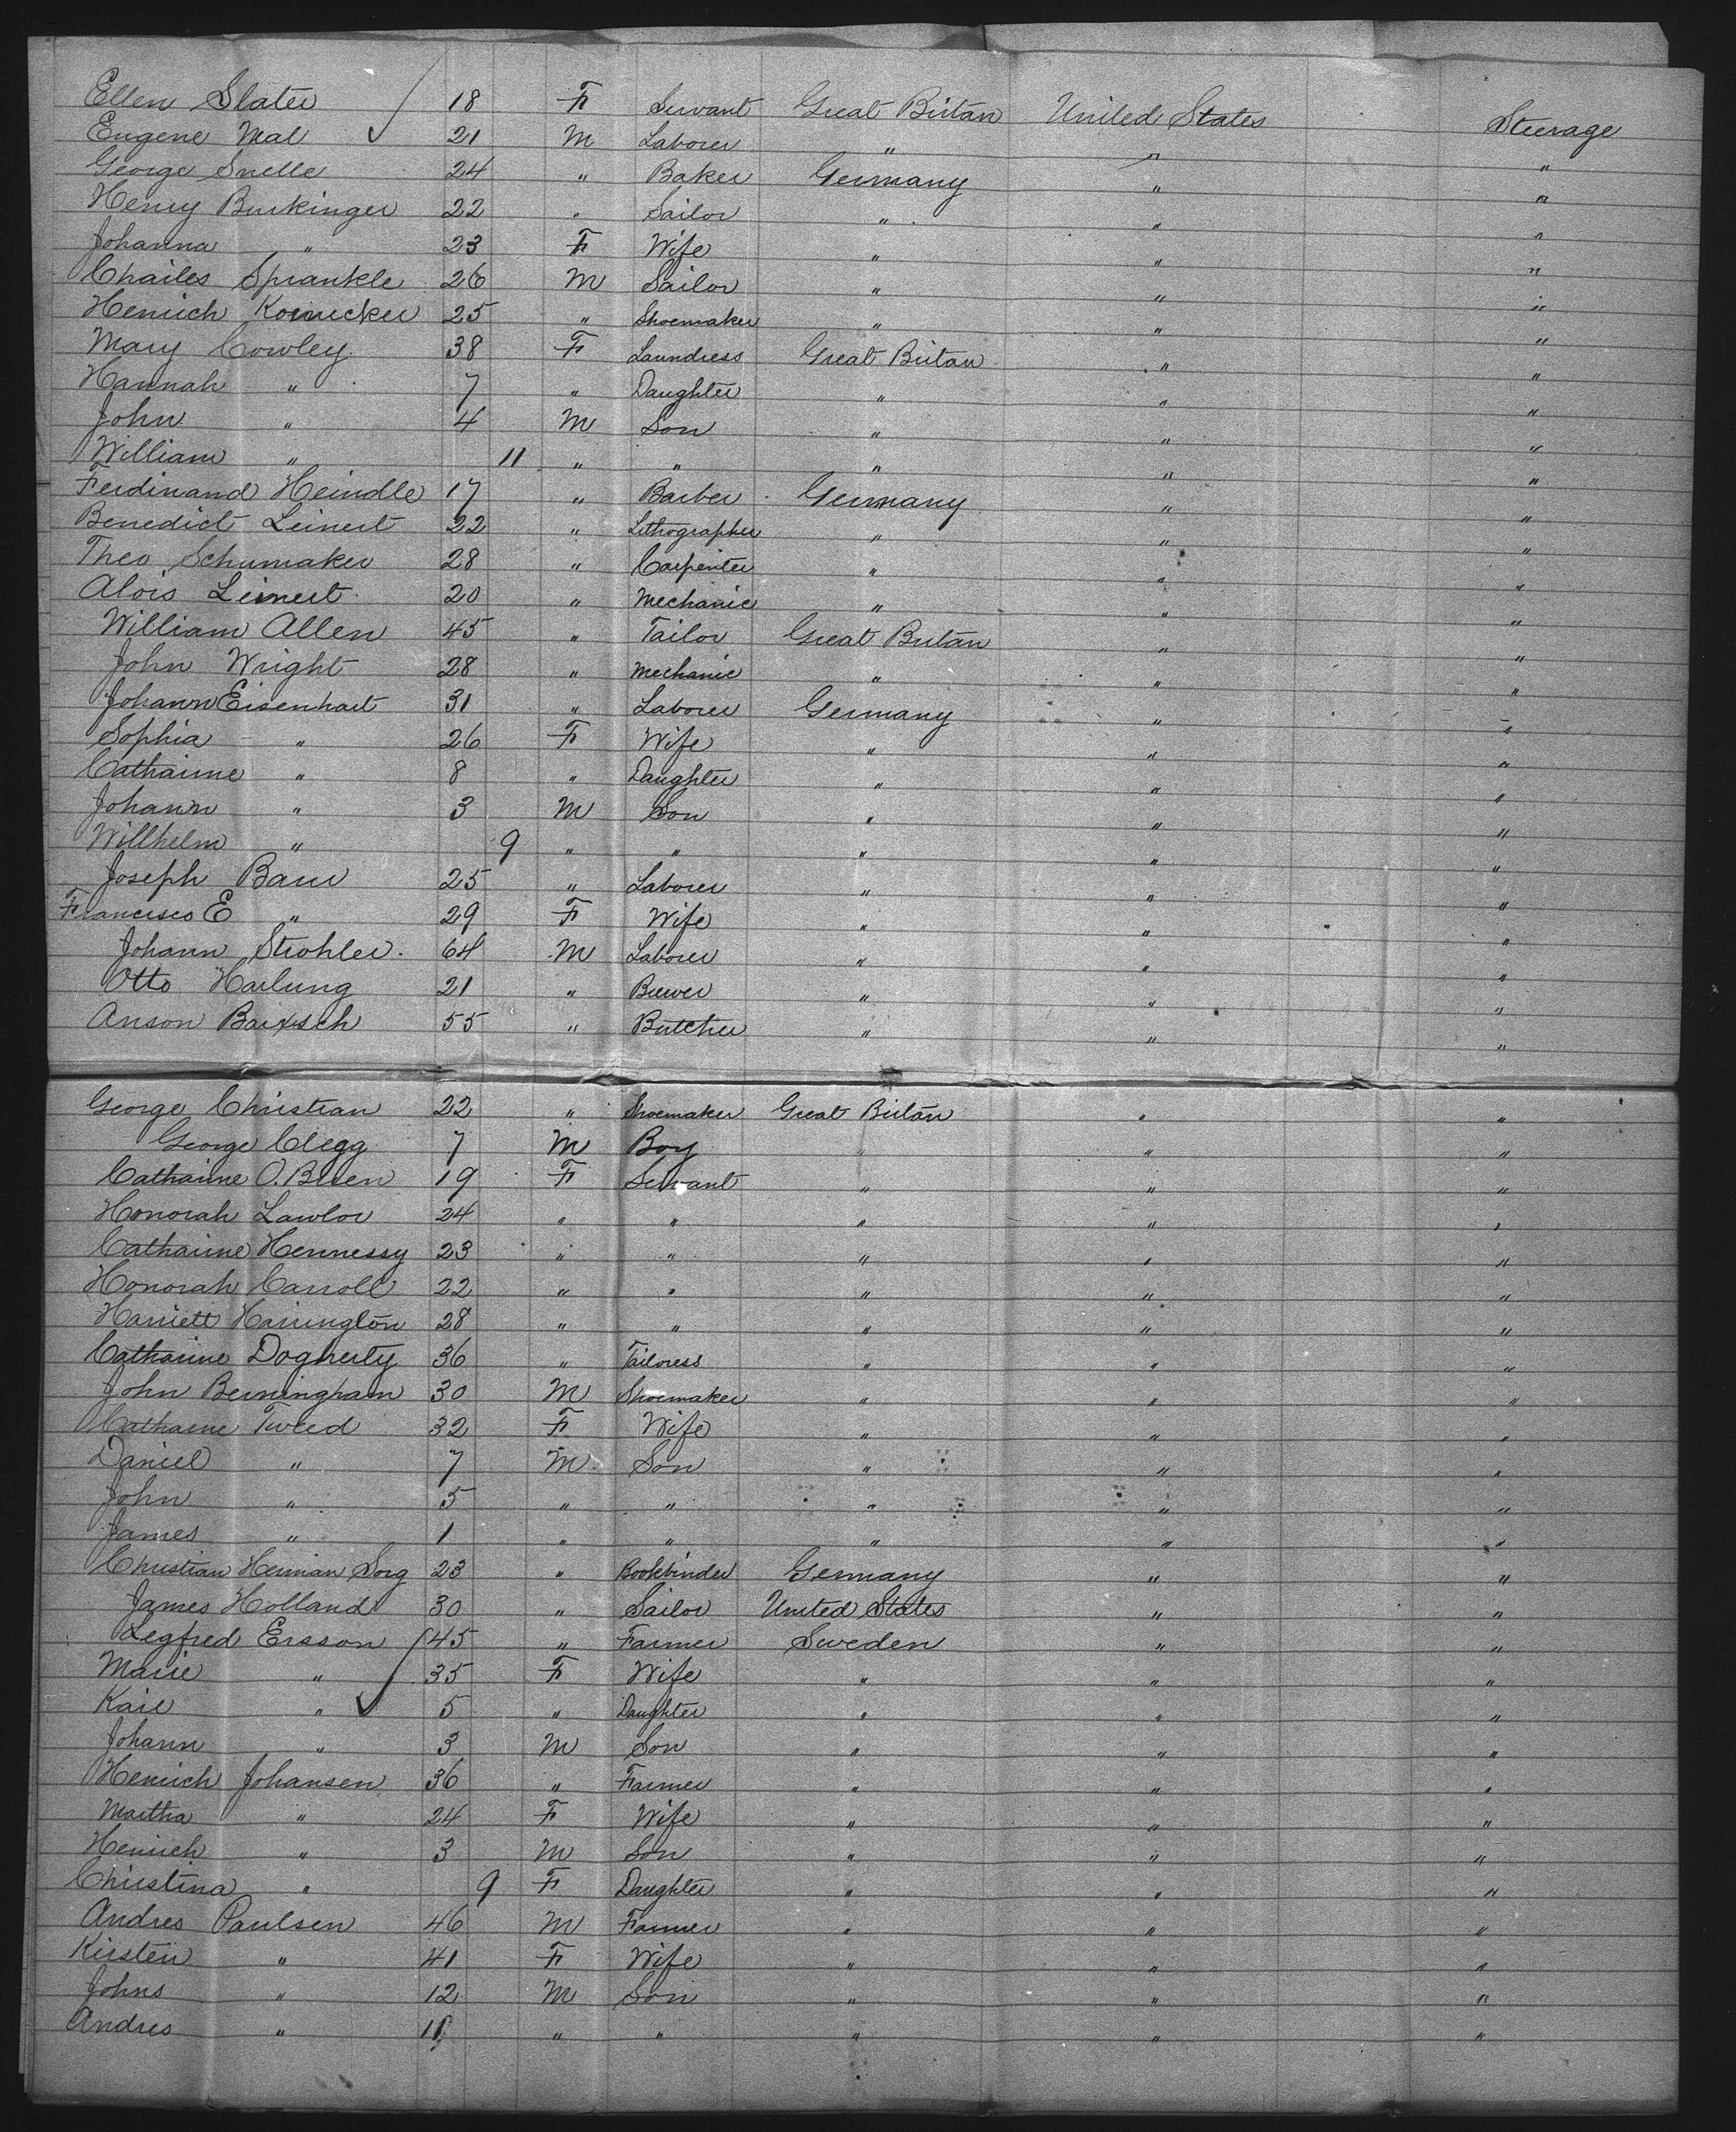 Ellen Slater 18 F Servant Great Britan United States Steerage
Eugene Mal 21 M Laborer " " "
George Snelle 24 " Baker Germany " "
Henry Burkinger 22 " Sailor " " "
Johanna " 23 F Wife " " "
Charles Sprankle 26 M Sailor " " "
Henrich Konnecker 25 " Shoemaker " " "
Mary Cowley 38 F Laundress Great Britan " "
Hannah " 7 " Daughter " " "
John " 4 M Son " " "
William " 11 " " " " "
Ferdinand Heindle 17 " Barber Germany " "
Benedict Leinert 22 " Lithographer " " "
Theo Schumaker 28 " Carpenter " " "
Alois Leinert 20 " Mechanic " " "
William Allen 45 " Tailor Great Britan " "
John Wright 28 " Mechanic " " "
Johann Eisenhart 31 " Laborer Germany " "
Sophia " 26 F Wife " " "
Catharine " 8 " Daughter " " "
Johann " 3 M Son " " "
Willhelm " 9 " " " " "
Joseph Baur 25 " Laborer " " "
Francisco E " 29 F Wife " " "
Johann Strohler 64 M Laborer " " "
Otto Harlung 21 " Brewer " " "
Anson 55 " Butcher " " "
George Christian 22 " Shoemaker Great Britan " "
George Clegg 7 M Boy " " "
Catharine O.Brien 19 F Servant " " "
Honorah Lawlor 24 " " " " "
Catharine Hennessy 23 " " " " "
Honorah Carroll 22 " " " " "
Harriett Harrington 28 " " " " "
Catharine Dogherty 36 " Tailoress " " "
John Berningham 30 M Shoemaker " " "
Catharne Tweed 32 F Wife " " "
Daniel " 7 M Son " " "
John " 5 " " " " "
James " 1 " " " " "
Christian Herman Sorg 23 " Bookbinder Germany " "
James Holland 30 " Sailor United States " "
Legfred Ersson 45 " Farmer Sweden " "
Marie " 35 F Wife " " "
Kare " 5 " Daughter " " "
Johann " 3 M Son " " "
Henrich Johansen 36 " Farmer " " "
Martha " 24 F Wife " " "
Henrich " 3 M Son " " "
Christina " 9 F Daughter " " "
Andres Paulsen 46 M Farmer " " "
Kirsten " 41 F Wife " " "
Johns " 12 M Son " " "
Andres " " " " " "